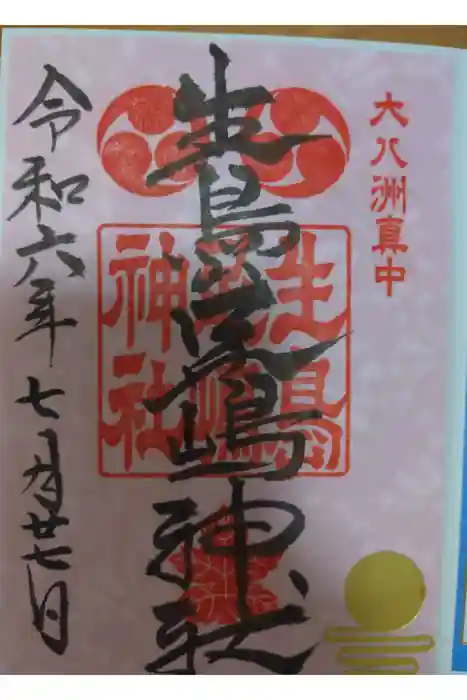 大八洲真中
生島足嶋神社
生島足嶋神社
令和六年七月廿七日